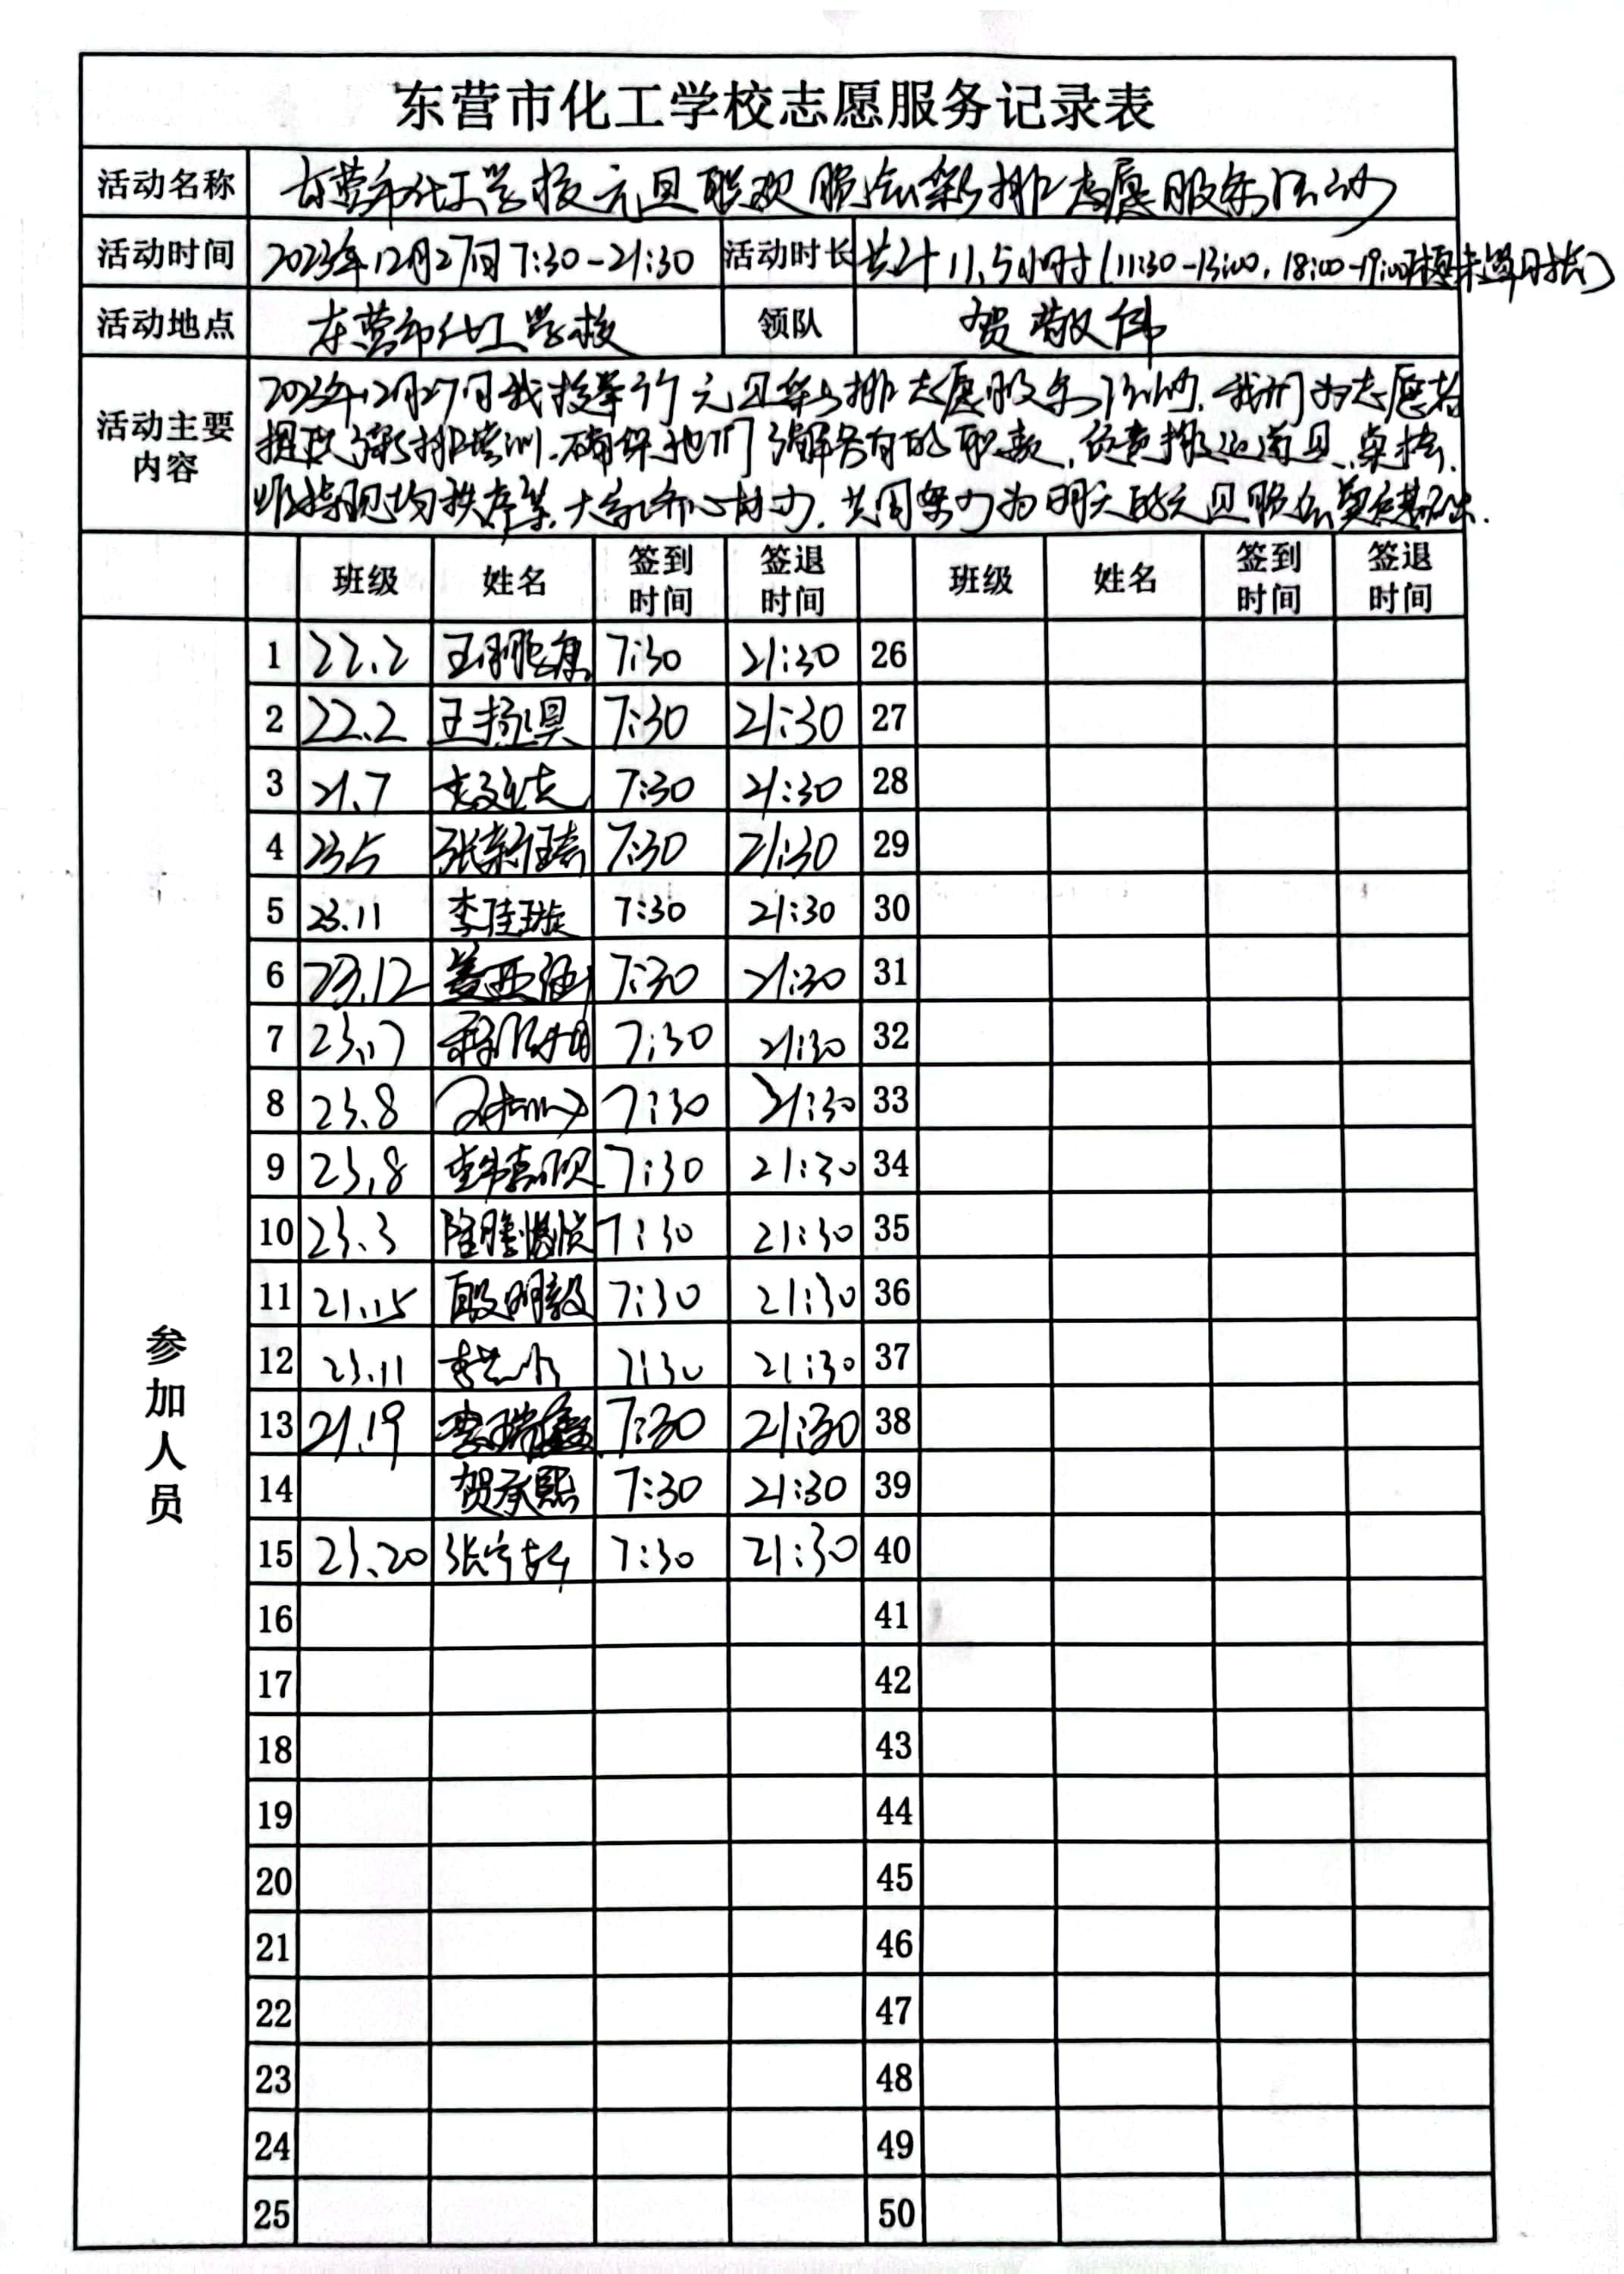 东营市化工学校志愿服务记录表
活动名称 东营市化工学校元旦联欢晚会彩排志愿服务活动
活动时间 2023年12月27日 7:30-21:30 活动时长 共计11.5小时(11:30-13:00,18:00-19:00 未算时长)
活动地点 东营市化工学校 领队 贺敬伟
活动主要内容
2023年12月27日我校举行元旦彩排志愿服务活动,我们为志愿者
提供了彩排培训,确保他们了解各自的职责,负责搬运道具、桌椅,
维持现场秩序等,大家齐心协力,共同努力为明天的元旦晚会奠定基础.
班级 姓名 签到时间 签退时间 班级 姓名 签到时间 签退时间
参加人员
1 22.2 7:30 21:30 26
2 22.2 7:30 21:30 27
3 21.7 7:30 21:30 28
4 23.5 7:30 21:30 29
5 23.11 李佳璇 7:30 21:30 30
6 23.12 7:30 21:30 31
7 23.17 7:30 21:30 32
8 23.8 7:30 21:30 33
9 23.8 7:30 21:30 34
10 23.3 7:30 21:30 35
11 21.15 殷明毅 7:30 21:30 36
12 23.11 7:30 21:30 37
13 21.19 7:30 21:30 38
14 贺承熙 7:30 21:30 39
15 23.20 7:30 21:30 40
16 41
17 42
18 43
19 44
20 45
21 46
22 47
23 48
24 49
25 50